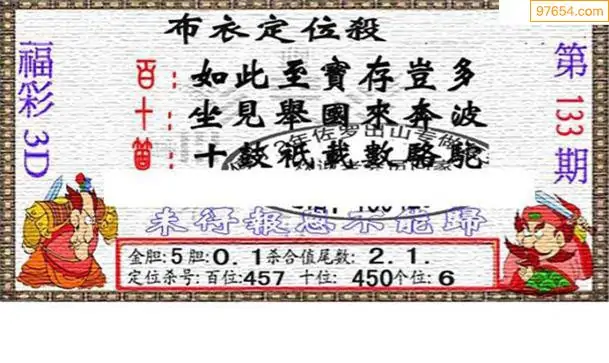 97654.com
布衣定位殺
福彩3D
第133期
百：如此至寶存豈多
十：坐見舉國來奔波
個：十鼓祇載數駱駝
未得報恩不能歸
金胆:5胆:0.1杀合值尾数:2.1.
定位杀号:百位:457 十位:450个位:6